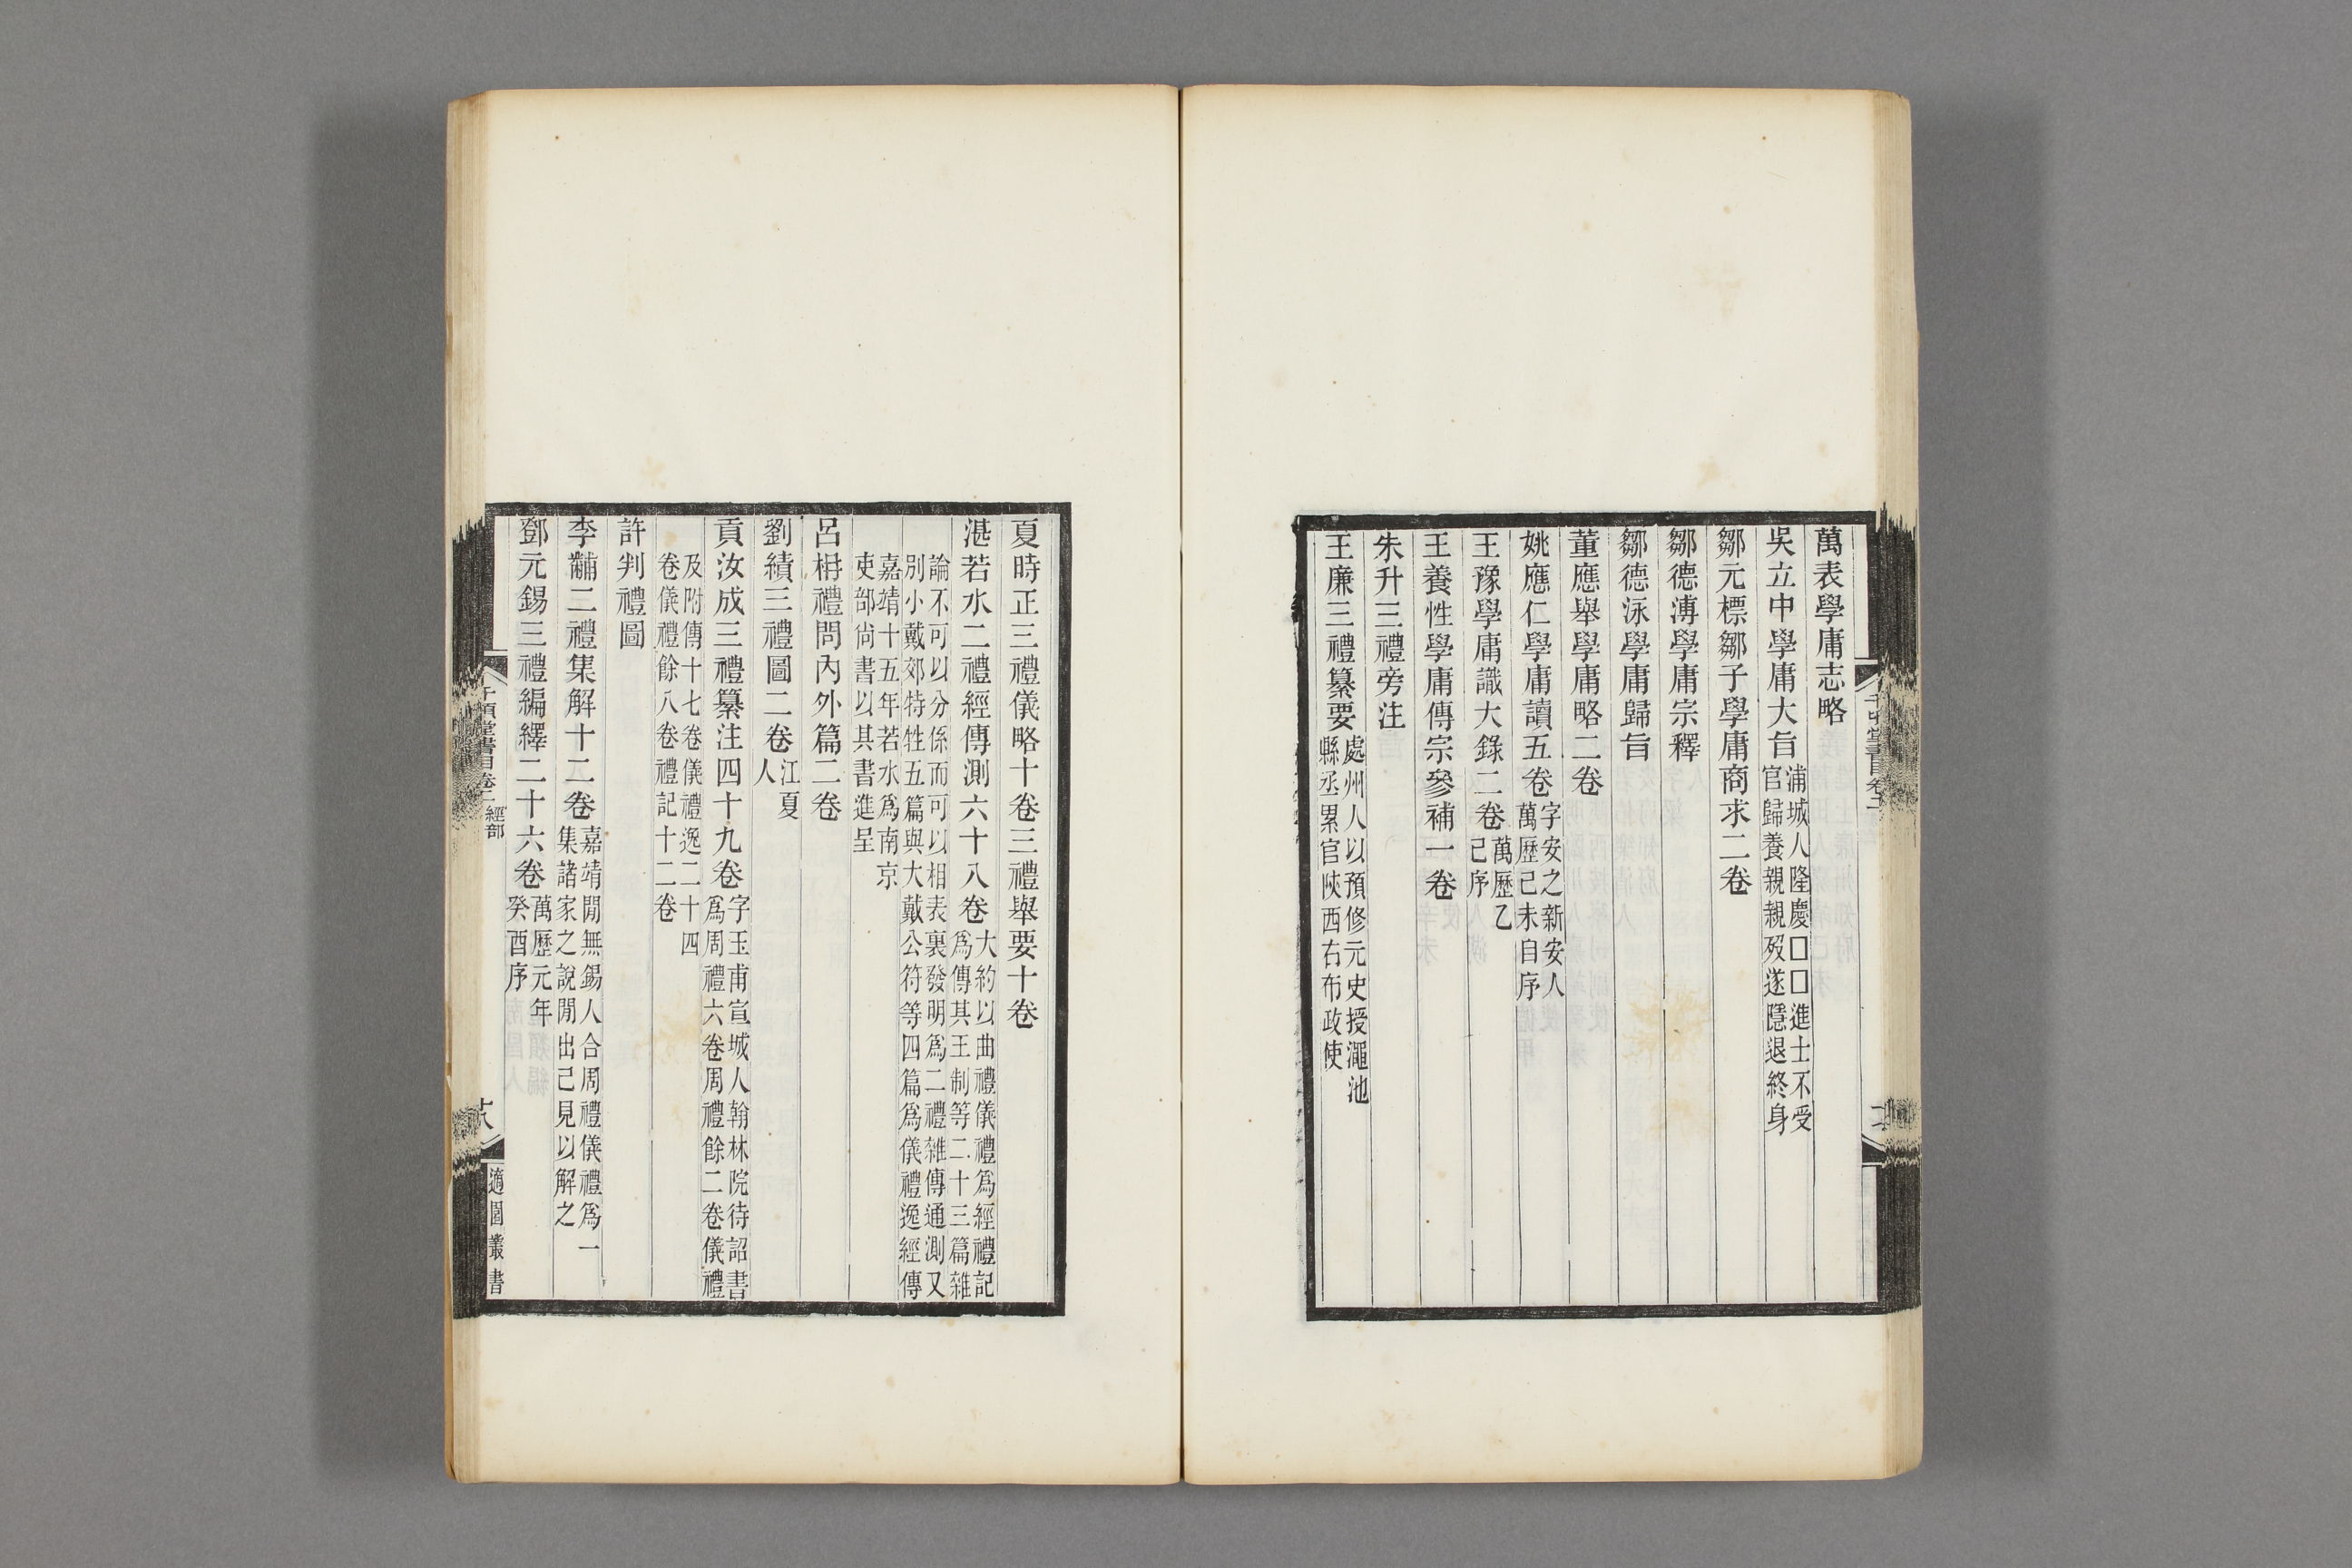 萬表學庸志略
吳立中學庸大旨浦城人隆慶□□進士不受官歸養親親歿遂隱退終身
鄒元標鄒子學庸商求二卷
鄒德溥學庸宗釋
鄒德泳學庸歸旨
董應舉學庸略二卷
姚應仁學庸讀五卷字安之新安人萬歷己未自序
王豫學庸識大錄二卷萬歷乙己序
王養性學庸傳宗參補一卷
朱升三禮旁注
王廉三禮纂要處州人以預修元史授澠池縣丞累官陝西右布政使
夏時正三禮儀略十卷三禮舉要十卷
湛若水二禮經傳測六十八卷大約以曲禮儀禮爲經禮記爲傳其王制等二十三篇雜
論不可以分係而可以相表裏發明爲二禮雜傳通測又別小戴郊特牲五篇與大戴公符等四篇爲儀禮逸經傳
嘉靖十五年若水爲南京吏部尙書以其書進呈
呂柟禮問內外篇二卷
劉績三禮圖二卷江夏人
貢汝成三禮纂注四十九卷字玉甫宣城人翰林院待詔書爲周禮六卷周禮餘二卷儀禮
及附傳十七卷儀禮逸二十四卷儀禮餘八卷禮記十二卷
許判禮圖
李黼二禮集解十二卷嘉靖閒無錫人合周禮儀禮爲一集諸家之說閒出己見以解之
鄧元錫三禮編繹二十六卷萬歷元年癸酉序
千頃堂書目卷二 經部
十八
適園叢書